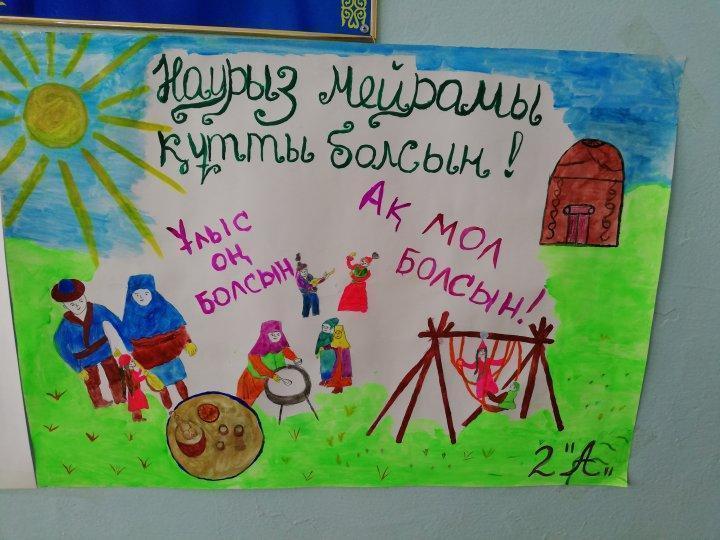 Наурыз мейрамы
құтты болсын!
Ұлыс
оң
болсын
Ақ мол
болсын!
2 "А"